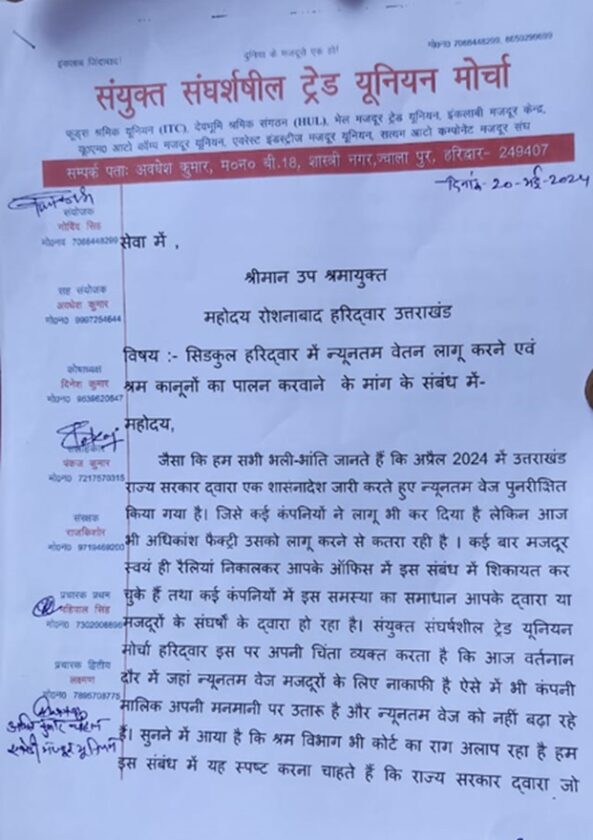 इंकलाब जिंदाबाद!
दुनिया के मजदूरो एक हो!
मो०न० 7088448299, 8650299699
संयुक्त संघर्शषील ट्रेड यूनियन मोर्चा
फूड्स श्रमिक यूनियन (ITC), देवभूमि श्रमिक संगठन (HUL), भेल मजदूर ट्रेड यूनियन, इंकलाबी मजदूर केन्द्र,
यू०एन० आटो कॉम्प मजदूर यूनियन, एवरेस्ट इंडस्ट्रीज मजदूर यूनियन, सत्यम आटो कम्पोनेट मजदूर संघ
सम्पर्क पताः अवधेश कुमार, म०न० बी.18, शास्त्री नगर,ज्वाला पुर, हरिद्वार- 249407
दिनांक- 20-मई-2024
संयोजक
गोविंद सिंह
मो०न० 7088448299
सह संयोजक
अवधेश कुमार
मो०न० 9997254644
कोषाध्यक्ष
दिनेश कुमार
मो०न० 9639620847
पंकज कुमार
मो०न० 7217570315
संरक्षक
राजकिशोर
मो०न० 9719469200
प्रचारक प्रथम
सिंह
मो०न० 7302908898
प्रचारक द्वितीय
लक्ष्मण
मो०न० 7895708775
सेवा में ,
श्रीमान उप श्रमायुक्त
महोदय रोशनाबाद हरिद्वार उत्तराखंड
विषय :- सिडकुल हरिद्वार में न्यूनतम वेतन लागू करने एवं
श्रम कानूनों का पालन करवाने के मांग के संबंध में-
महोदय,
जैसा कि हम सभी भली-भांति जानते हैं कि अप्रैल 2024 में उत्तराखंड
राज्य सरकार द्वारा एक शासनादेश जारी करते हुए न्यूनतम वेज पुनरीक्षित
किया गया है। जिसे कई कंपनियों ने लागू भी कर दिया है लेकिन आज
भी अधिकांश फैक्ट्री उसको लागू करने से कतरा रही है । कई बार मजदूर
स्वयं ही रैलियां निकालकर आपके ऑफिस में इस संबंध में शिकायत कर
चुके हैं तथा कई कंपनियों में इस समस्या का समाधान आपके द्वारा या
मजदूरों के संघर्षो के द्वारा हो रहा है। संयुक्त संघर्षशील ट्रेड यूनियन
मोर्चा हरिद्वार इस पर अपनी चिंता व्यक्त करता है कि आज वर्तनान
दौर में जहां न्यूनतम वेज मजदूरों के लिए नाकाफी है ऐसे में भी कंपनी
मालिक अपनी मनमानी पर उतारू है और न्यूनतम वेज को नहीं बढ़ा रहे
हैं। सुनने में आया है कि श्रम विभाग भी कोर्ट का राग अलाप रहा है हम
इस संबंध में यह स्पष्ट करना चाहते हैं कि राज्य सरकार द्वारा जो